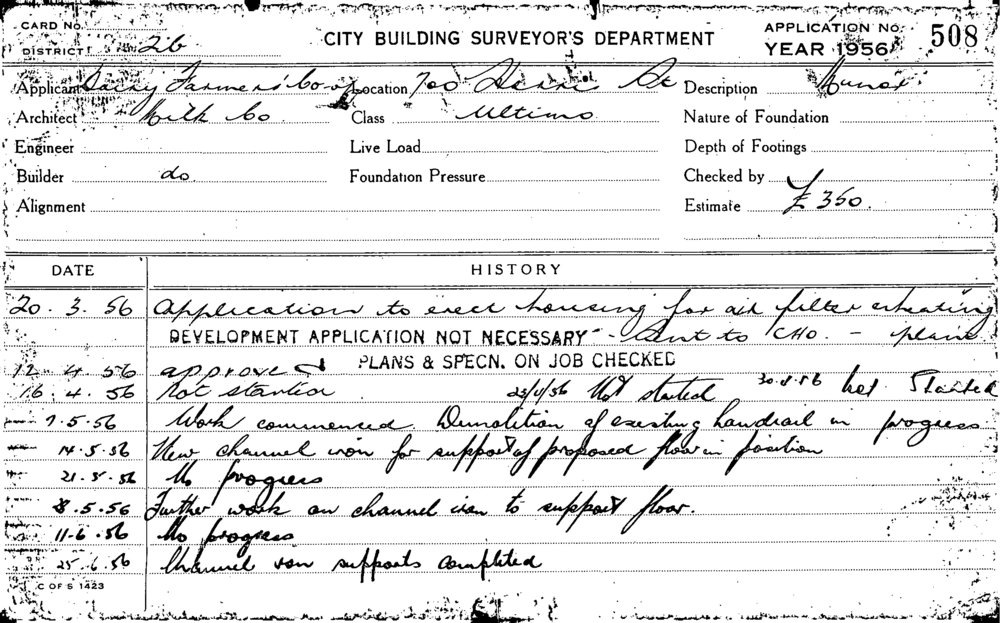 CARD No.
CITY BUILDING SURVEYOR'S DEPARTMENT
APPLICATION No. 508
DISTRICT 26
YEAR 1956
Applicant Dairy Farmers' Co-op Location 700 Harris St Description Minor
Architect Milk Co Class Ultimo Nature of Foundation
Engineer Live Load Depth of Footings
Builder do Foundation Pressure Checked by
Alignment Estimate £ 350.
DATE HISTORY
20. 3. 56 Application to erect housing for air filter & heating
DEVELOPMENT APPLICATION NOT NECESSARY - Sent to CHO - plans
12 4. 56 approved PLANS & SPECN. ON JOB CHECKED
16. 4. 56 Not started 23/4/56 Not started 30.4.56 Not Started
7.5.56 Work commenced. Demolition of existing handrail in progress
14.5.56 New channel iron for support of proposed floor in position
21.5.56 No progress
8.5.56 Further work on channel iron to support floor.
11.6.56 No progress
25.6.56 Channel iron supports completed
C OF S 1423